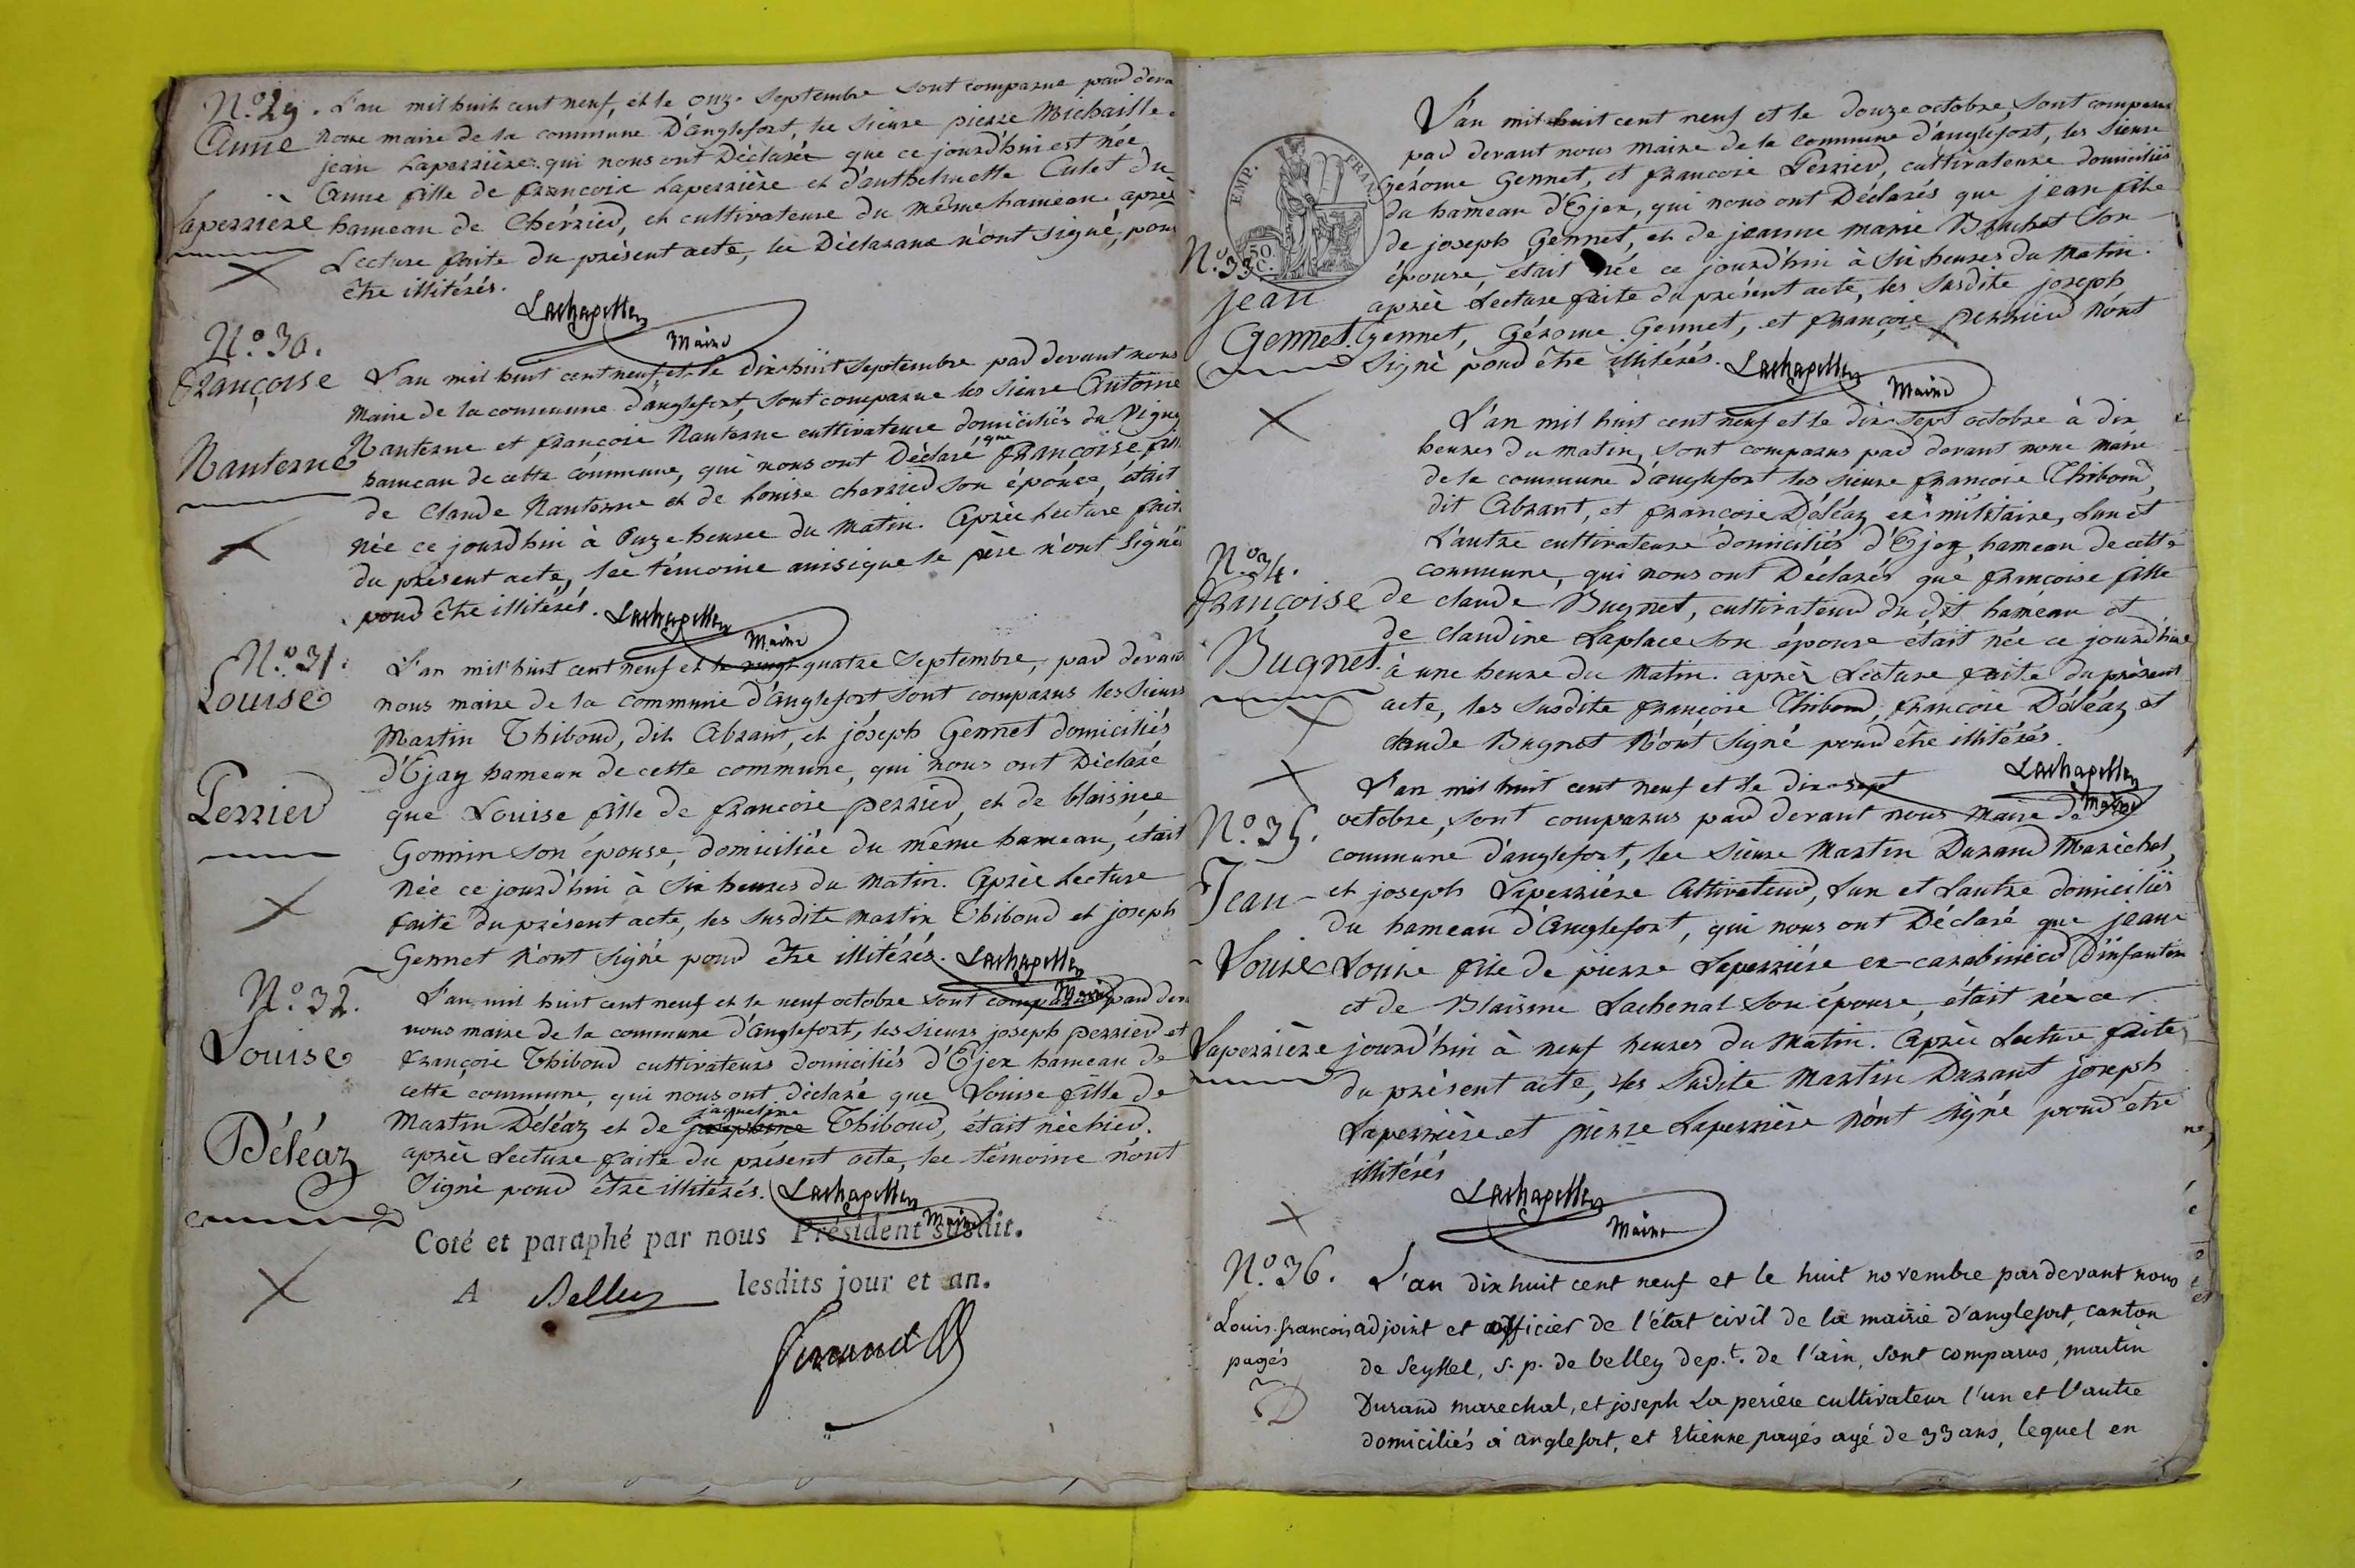 N.º 29.
Anne
Laperrière
L'an mil huit cent neuf, et le onze Septembre sont comparue pard deva
nous maire de la commune D'anglefort, les Sieurs pierre Michaille.
jean Laperrière qui nous ont Déclaré que ce jourd'hui est née
Anne fille de françoix Laperrière et d'anthelmette Culet du
hameau de Cherried, et cultivateurs du même hameau. apres
Lecture faite du présent acte, les Déclarans n'ont signé, pour
être illitérés.
Lachapelle
Maire
N.º 30.
Françoise
Nanterne
L'an mil huit cent neuf, et le dix huit Septembre pard devant nous
maire de la commune d'anglefort, sont comparue les Sieurs Antoine
Nanterne et françois Nanterne cultivateurs domiciliés du
hameau de cette commune, qui nous ont Déclaré que françoise fill
de Claude Nanterne et de Louise cherried son épouse, était
née ce jourd'hui à Onze heures du Matin. Après Lecture faite
du présent acte, les témoins ainsi que le père n'ont Signé
pourd être illitérés.
Lachapelle
Maire
N.º 31.
Louise
Perried
L'an mil huit cent neuf et le vingt quatre Septembre, pard devant
nous maire de la commune d'anglefort sont comparus les Sieurs
Martin Thiboud, dit Abrant, et joseph Gennet domiciliés
d'Ejay hameau de cette commune, qui nous ont Déclaré
que Louise fille de françois perried, et de blaisine
Gonnin son épouse, domiciliée du même hameau, était
née ce jourd'hui à Six heures du Matin. Après Lecture
faite du présent acte, les susdits Martin Thiboud et joseph
Gennet n'ont Signé pourd être illitérés.
Lachapelle
Maire
N.º 32.
Louise
Déléaz
L'an mil huit cent neuf et le neuf octobre sont comparus pard dev
nous maire de la commune d'anglefort, les sieurs joseph perried et
françois Thiboud cultivateurs domiciliés d'Ejex hameau de
cette commune, qui nous ont déclaré que Louise fille de
Martin Déléaz et de josephine jaqueline Thiboud, était née hied.
après Lecture faite du présent acte, les témoins n'ont
Signé pourd être illitérés.
Lachapelle
Maire
Coté et paraphé par nous Président susdit.
A Belley lesdits jour et an.
EMP. FRAN.
50 C.
N.º 33
jean
Gennet.
L'an mil huit cent neuf et le douze octobre, sont comparu
pard devant nous maire de la commune d'anglefort, les Sieurs
Gérome Gennet, et françois Perried, cultivateurs domiciliés
du hameau d'Ejex, qui nous ont Déclarés que jean fils
de joseph Gennet, et de jeanne marie Brachet Son
épouse, était née ce jourd'hui à Six heures du Matin.
après Lecture faite du présent acte, les susdits joseph
Gennet, Gérome Gennet, et françois perried n'ont
Signé pourd être illitérés.
Lachapelle
Maire
N.º 34.
Françoise
Bugnet.
L'an mil huit cent neuf et le dix Sept octobre à dix
heures du matin, sont comparus pard devant nous maire
de la commune d'anglefort les sieurs françois Thiboud,
dit Abrant, et françois Déléaz ex-militaire, L'un et
L'autre cultivateurs domiciliés d'Ejex hameau de cette
commune, qui nous ont Déclarés que françoise fille
de claude Bugnet, cultivateurd du dit hameau et
de claudine Laplace son épouse était née ce jourd'hui
à une heure du Matin. après Lecture faite du présent
acte, les susdits françois Thiboud, françois Déléaz et
claude Bugnet N'ont Signé pourd être illitérés.
Lachapelle
Maire
N.º 35.
Jean-
Louis
Laperrière
L'an mil huit cent neuf et le dix sept
octobre, sont comparus pard devant nous Maire de la
commune d'anglefort, les Sieurs Martin Durand Maréchal,
et joseph Laperrière Cultivateurd, L'un et L'autre domiciliés
du hameau d'Anglefort, qui nous ont Déclaré que jean
Louis fils de pierre Laperrière ex-carabinied D'infanterie
et de Blaisine Lachenal son épouse, était née ce
jourd'hui à neuf heures du Matin. Après Lecture faite
du présent acte, les Susdits Martin Durant joseph
Laperrière et pierre Laperrière n'ont signé pourd être
illitérés
Lachapelle
Maire
N.º 36.
Louis françois
pagés
L'an dix huit cent neuf et le huit novembre pardevant nous
adjoint et officier de l'état civil de la mairie d'anglefort, canton
de Seyssel, s. p. de belley dep.t. de l'ain, sont comparus, martin
Durand marechal, et joseph La periere cultivateur l'un et l'autre
domiciliés à anglefort, et Etienne pagés agé de 33 ans, lequel en